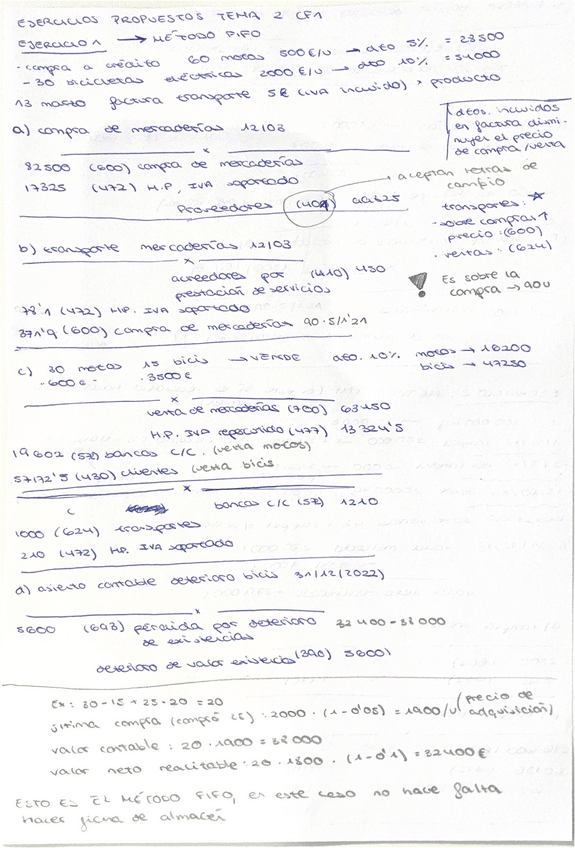 EJERCICIOS PROPUESTOS TEMA 2 CF1
EJERCICIO 1 → MÉTODO FIFO
· compra a crédito 60 motos 500€/u → dto 5% = 28500
- 30 bicicletas eléctricas 2000€/u → dto 10% = 54000
13 marzo factura transporte 5€ (IVA incluido) x producto
dtos. incluidos
en factura dismi-
nuyen el precio
de compra/venta
a) compra de mercaderías 12/03
x
82500 (600) compra de mercaderías
17325 (472) H.P. IVA soportado
Proveedores (401) 99825
aceptan letras de
cambio
transportes: ☆
- sobre compras ↑
precio: (600)
· ventas: (624)
b) transporte mercaderías 12/03
x
acreedores por (410) 450
prestación de servicios
78'1 (472) HP. IVA soportado
371'9 (600) compra de mercaderías 90·5/1'21
! Es sobre la
compra → 90u
c) 30 motos 15 bicis → VENDE dto. 10% motos → 16200
·600€· ·3500€ bicis → 47250
x
venta de mercaderías (700) 63450
H.P. IVA repercutido (477) 13324'5
19602 (572) bancos c/c. (venta motos)
57172'5 (430) clientes (venta bicis
x
bancos c/c (572) 1210
1000 (624) transportes
210 (472) HP. IVA soportado
d) asiento contable deterioro bicis 31/12/2022)
x
5600 (693) pérdida por deterioro 32400-38000
de existencias
deterioro de valor existencias (390) 5600
Ex: 30-15+25-20 = 20
última compra (compró 25): 2000 · (1-0'05) = 1900/u (precio de
adquisición)
valor contable: 20 · 1900 = 38000
valor neto realizable: 20 · 1800 · (1-0'1) = 32400€
ESTO ES EL MÉTODO FIFO, en este caso no hace falta
hacer ficha de almacén